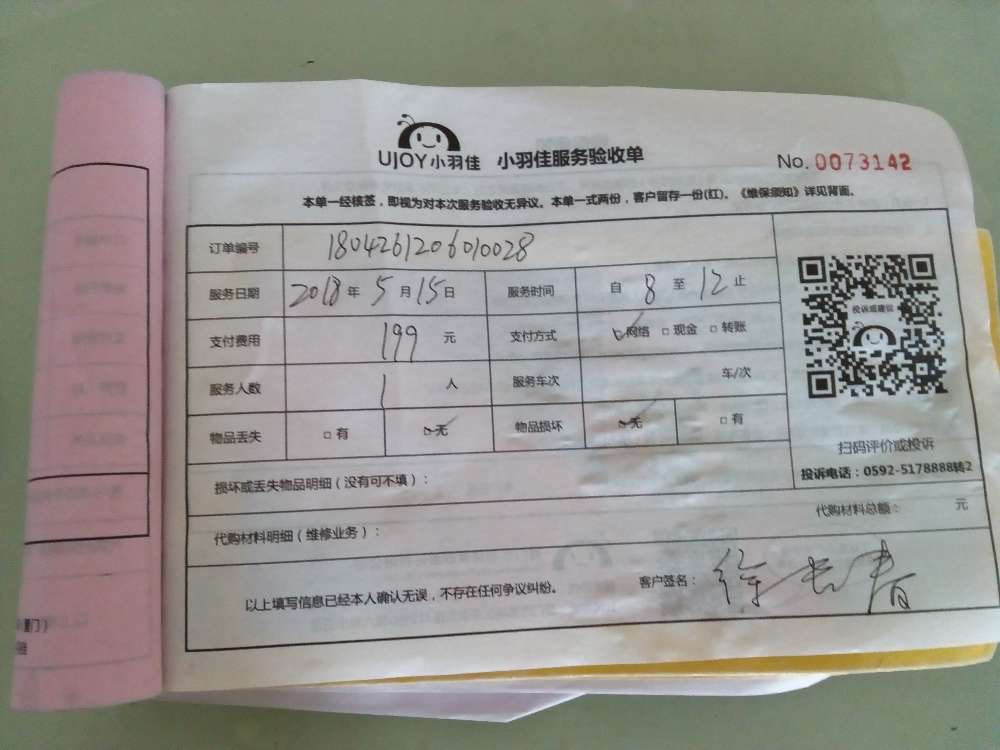 UJOY小羽佳 小羽佳服务验收单 No. 0073142
本单一经核签，即视为对本次服务验收无异议。本单一式两份，客户留存一份(红)。《维保须知》详见背面。
订单编号 1804261206010028
服务日期 2018 年 5 月 15 日 服务时间 自 8 至 12 止
投诉或建议
支付费用 199 元 支付方式 ☑网络 □现金 □转账
服务人数 1 人 服务车次 车/次
物品丢失 □有 ☑无 物品损坏 ☑无 □有
扫码评价或投诉
投诉电话：0592-5178888转2
损坏或丢失物品明细（没有可不填）：
代购材料明细（维修业务）： 代购材料总额： 元
以上填写信息已经本人确认无误，不存在任何争议纠纷。 客户签名： 徐长青
门）